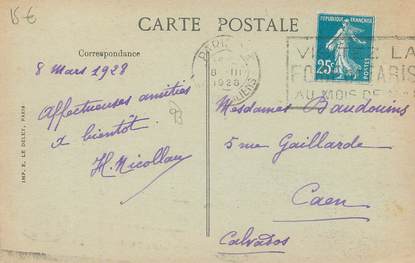 15€
CARTE POSTALE
Correspondance
8 Mars 1928
Affectueuses amitiés
à bientôt.
H. Nicollay
IMP. E. LE DELEY, PARIS
PARIS
8 III
1928
RÉPUBLIQUE FRANÇAISE
25c
POSTES
LA
PARIS
AU MOIS DE
Mesdames Baudouins
5 rue Gaillarde
Caen
Calvados